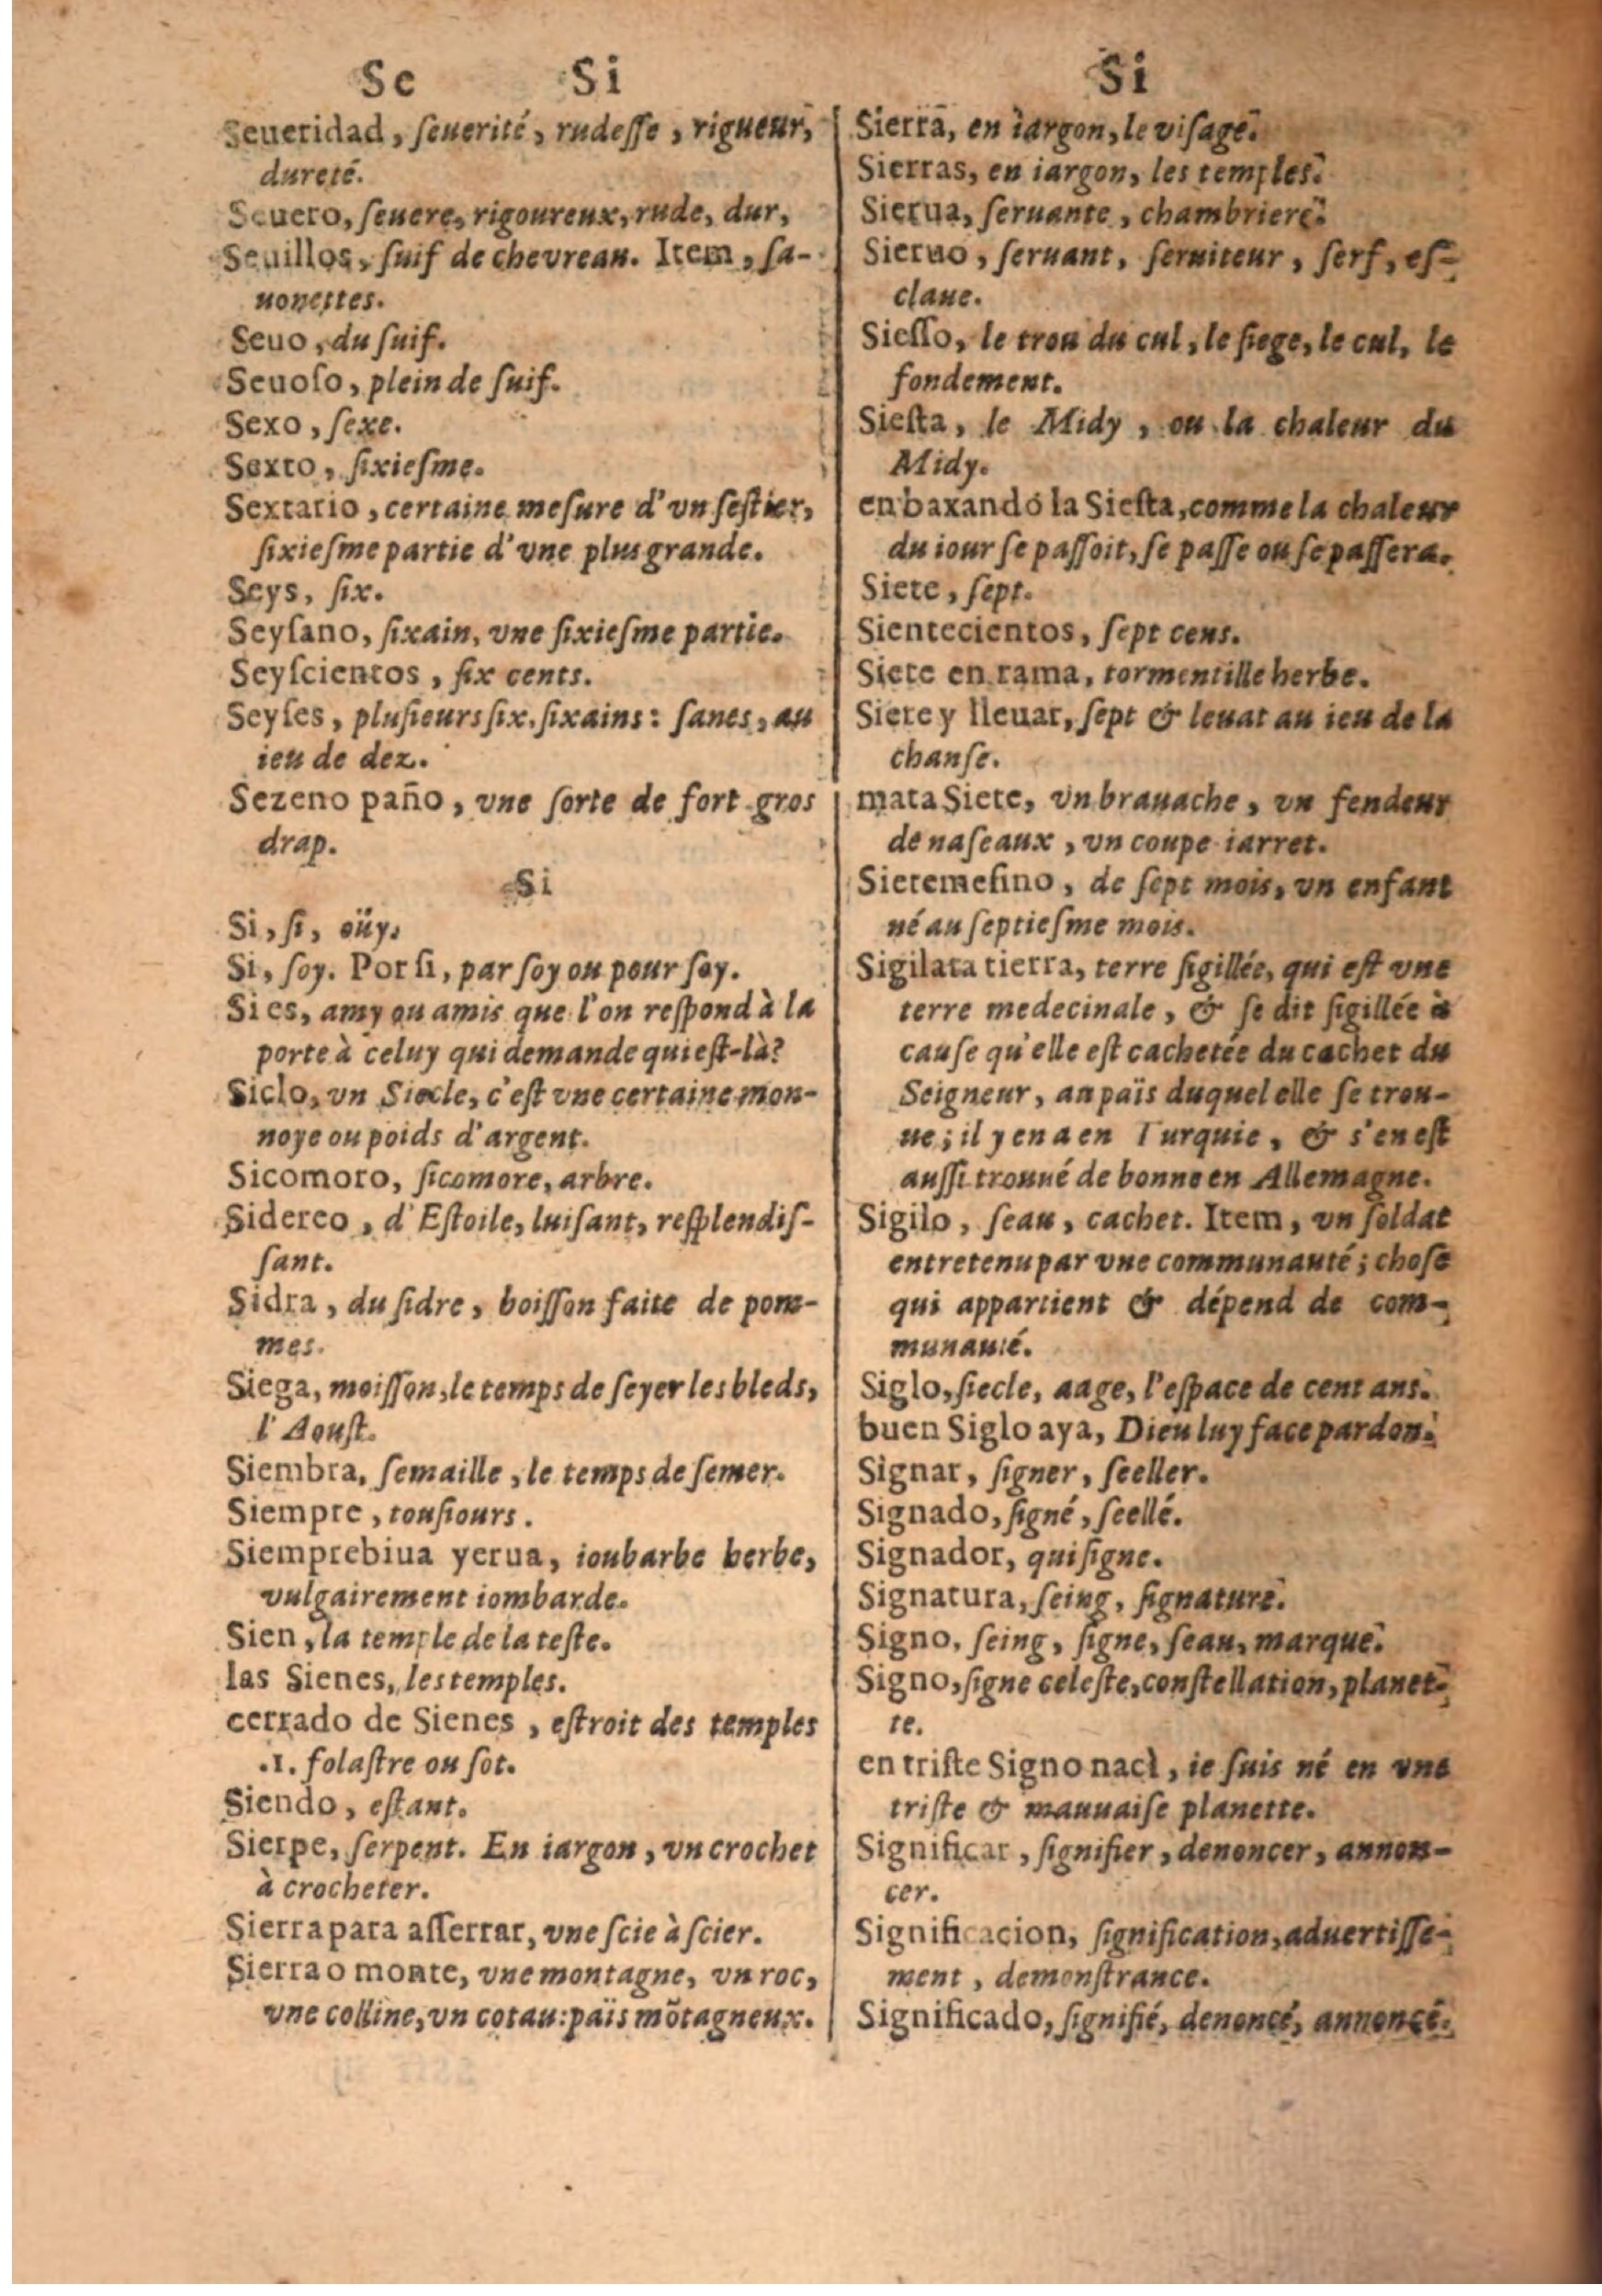 Se Si
Seueridad, ſeuerité, rudeſſe, rigueur,
dureté.
Seuero, ſeuere, rigoureux, rude, dur,
Seuillos, ſuif de chevreau. Item, ſa-
uonettes.
Seuo, du ſuif.
Seuoſo, plein de ſuif.
Sexo, ſexe.
Sexto, ſixieſme.
Sextario, certaine meſure d'vn ſeſtier,
ſixieſme partie d'vne plus grande.
Seys, ſix.
Seyſano, ſixain, vne ſixieſme partie.
Seyſcientos, ſix cents.
Seyſes, pluſieurs ſix, ſixains: ſanes, au
ieu de dez.
Sezeno paño, vne ſorte de fort gros
drap.
Si
Si, ſi, oüy.
Si, ſoy. Por ſi, par ſoy ou pour ſoy.
Si es, amy ou amis que l'on reſpond à la
porte à celuy qui demande qui eſt-là?
Siclo, vn Siecle, c'eſt vne certaine mon-
noye ou poids d'argent.
Sicomoro, ſicomore, arbre.
Sidereo, d'Eſtoile, luiſant, reſplendiſ-
ſant.
Sidra, du ſidre, boiſſon faite de pom-
mes.
Siega, moiſſon, le temps de ſeyer les bleds,
l'Aouſt.
Siembra, ſemaille, le temps de ſemer.
Siempre, touſiours.
Siemprebiua yerua, ioubarbe herbe,
vulgairement iombarde.
Sien, la temple de la teſte.
las Sienes, les temples.
cerrado de Sienes, eſtroit des temples
.1. folaſtre ou ſot.
Siendo, eſtant.
Sierpe, ſerpent. En iargon, vn crochet
à crocheter.
Sierra para aſſerrar, vne ſcie à ſcier.
Sierra o monte, vne montagne, vn roc,
vne colline, vn cotau: païs mõtagneux.
Si
Sierra, en iargon, le viſage.
Sierras, en iargon, les temples.
Sierua, ſeruante, chambriere.
Sieruo, ſeruant, ſeruiteur, ſerf, eſ-
claue.
Sieſſo, le trou du cul, le ſiege, le cul, le
fondement.
Sieſta, le Midy, ou la chaleur du
Midy.
en baxando la Sieſta, comme la chaleur
du iour ſe paſſoit, ſe paſſe ou ſe paſſera.
Siete, ſept.
Sientecientos, ſept cens.
Siete en rama, tormentille herbe.
Siete y lleuar, ſept & leuat au ieu de la
chanſe.
mata Siete, vn brauache, vn fendeur
de naſeaux, vn coupe iarret.
Sietemeſino, de ſept mois, vn enfant
né au ſeptieſme mois.
Sigilata tierra, terre ſigillée, qui eſt vne
terre medecinale, & ſe dit ſigillée à
cauſe qu'elle eſt cachetée du cachet du
Seigneur, au païs duquel elle ſe trou-
ue; il y en a en Turquie, & s'en eſt
auſſi trouué de bonne en Allemagne.
Sigilo, ſeau, cachet. Item, vn ſoldat
entretenu par vne communauté; choſe
qui appartient & dépend de com-
munauté.
Siglo, ſiecle, aage, l'eſpace de cent ans.
buen Siglo aya, Dieu luy face pardon.
Signar, ſigner, ſeeller.
Signado, ſigné, ſeellé.
Signador, qui ſigne.
Signatura, ſeing, ſignature.
Signo, ſeing, ſigne, ſeau, marque.
Signo, ſigne celeſte, conſtellation, planet-
te.
en triſte Signo nacì, ie ſuis né en vne
triſte & mauuaiſe planette.
Significar, ſignifier, denoncer, annon-
cer.
Significacion, ſignification, aduertiſſe-
ment, demonſtrance.
Significado, ſignifié, denoncé, annoncé.